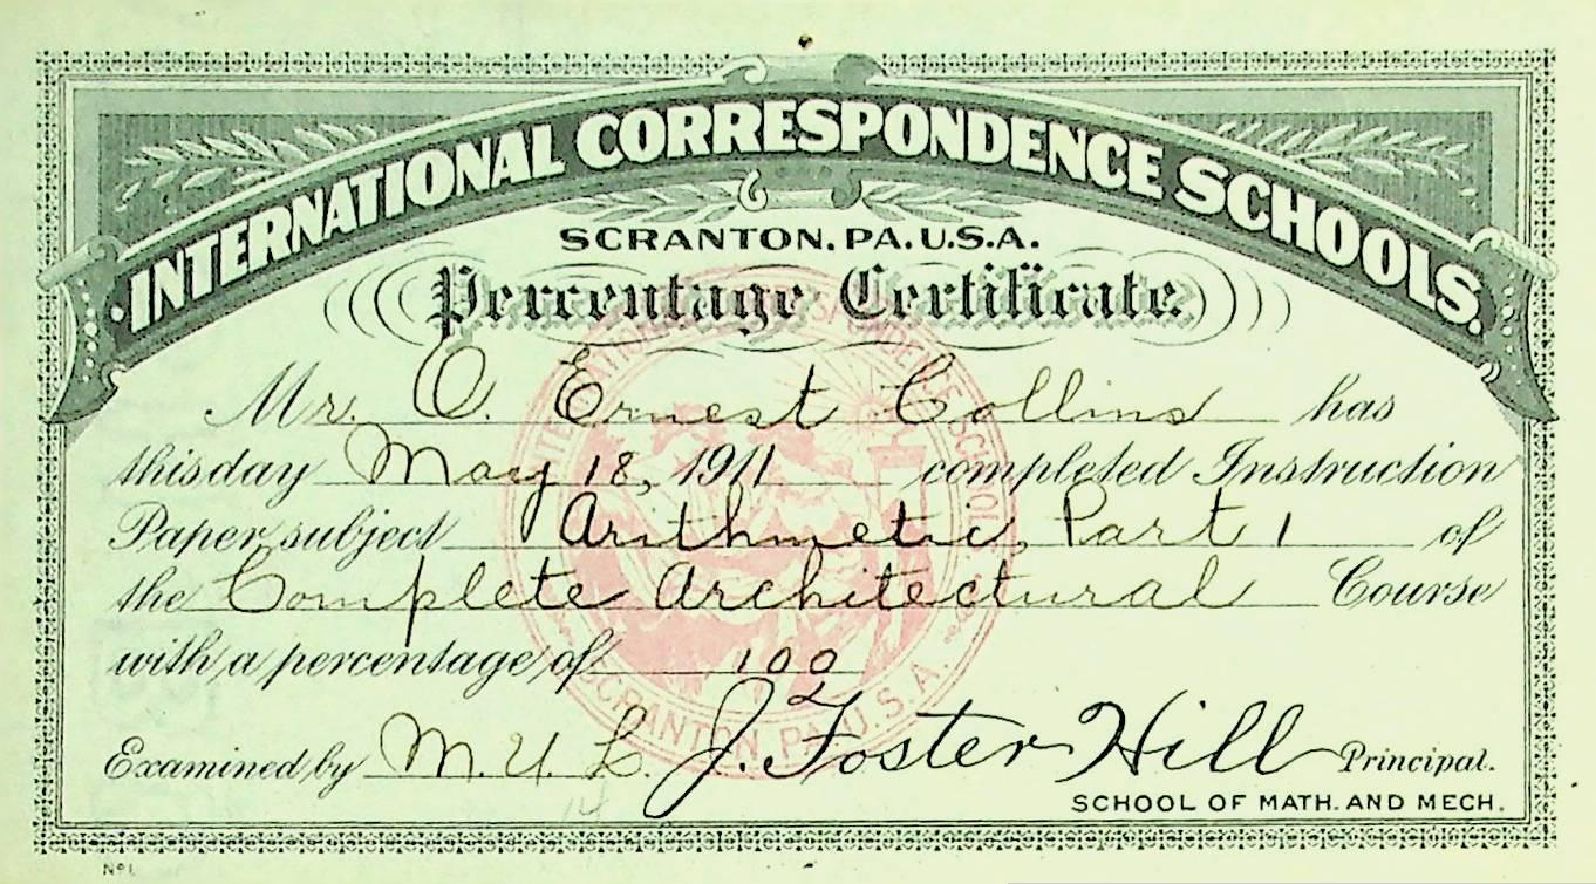 INTERNATIONAL CORRESPONDENCE SCHOOLS.
SCRANTON. PA. U.S.A.
Percentage Certificate
Mr. O. Ernest Collins has
this day May 18, 1911 completed Instruction
Paper, subject Arithmetic, Part 1 of
the Complete Architectural Course
with a percentage of 100
Examined by M. U. L. J. Foster Hill Principal.
SCHOOL OF MATH. AND MECH.
INTERNATIONAL CORRESPONDENCE SCHOOLS
SCRANTON, PA. U.S.A.
14
Nº 1.